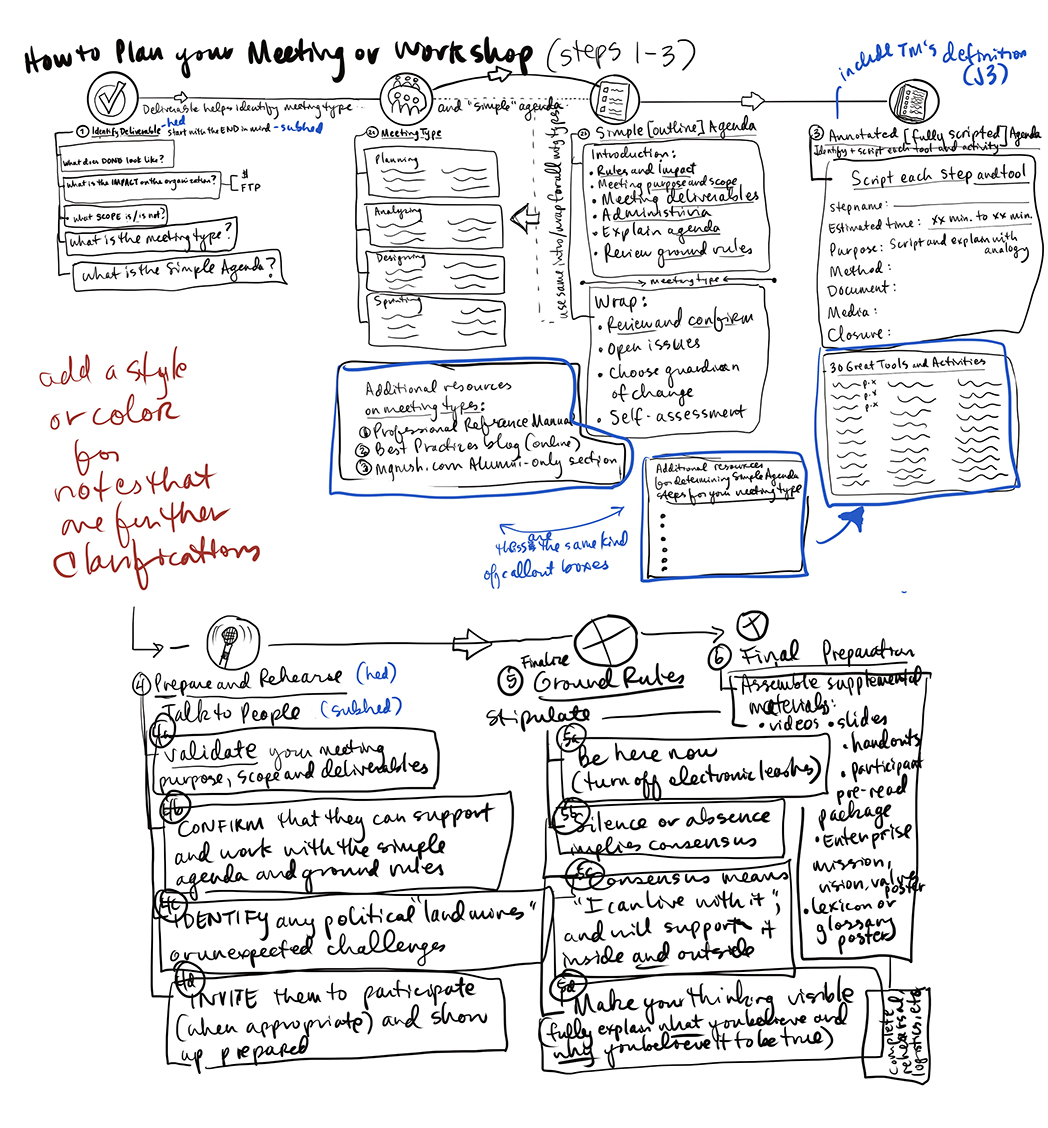 How to Plan your Meeting or Workshop (steps 1-3)
include TM's definition
(J3)
Deliverable helps identify meeting type
and "simple" agenda
① Identify Deliverable - hed
Start with the END in mind - subhed
What does DONE look like?
What is the IMPACT on the organization?
$
FTP
what SCOPE is/is not?
what is the meeting type?
what is the Simple Agenda?
Meeting Type
Planning
Analyzing
Designing
Sprinting
use same intro/wrap for all mtg types
Simple [outline] Agenda
Introduction:
• Rules and Impact
• Meeting purpose and scope
• Meeting deliverables
• Administrivia
• Explain agenda
• Review ground rules
meeting type
Wrap:
• Review and confirm
• Open issues
• Choose guardian
of change
• Self-assessment
③ Annotated [fully scripted] Agenda
Identify + script each tool and activity
Script each step and tool
Stepname:
Estimated time: xx min. to xx min.
Purpose: Script and explain with
analogy
Method:
Document:
Media:
Closure:
30 Great Tools and Activities
p.x
p.x
p.x
Additional resources
on meeting types:
① Professional Reference Manual
② Best Practices blog (online)
③ mgrush.com Alumni-only section
Additional resources
for determining Simple Agenda
steps for your meeting type
these are the same kind
of callout boxes
add a style
or color
for
notes that
are further
Clarifications
④ Prepare and Rehearse (hed)
Talk to People (subhed)
4a
Validate your meeting
purpose, scope and deliverables
4b
CONFIRM that they can support
and work with the simple
agenda and ground rules
4c
IDENTIFY any political "landmines"
or unexpected challenges
4d
INVITE them to participate
(when appropriate) and show
up prepared
Finalize
⑤ Ground Rules
Stipulate
5a
Be here now
(turn off electronic leashes)
5b
Silence or absence
implies consensus
5c
Consensus means
"I can live with it",
and will support it
inside and outside
5d
Make your thinking visible
(fully explain what you believe and
why you believe it to be true)
⑥ Final Preparation
Assemble supplemental
materials:
• videos • slides
• handouts
• participant
pre-read
package
• Enterprise
mission,
vision, values
poster
• Lexicon or
glossary
poster)
Complete
rehearsal,
logistics, etc.